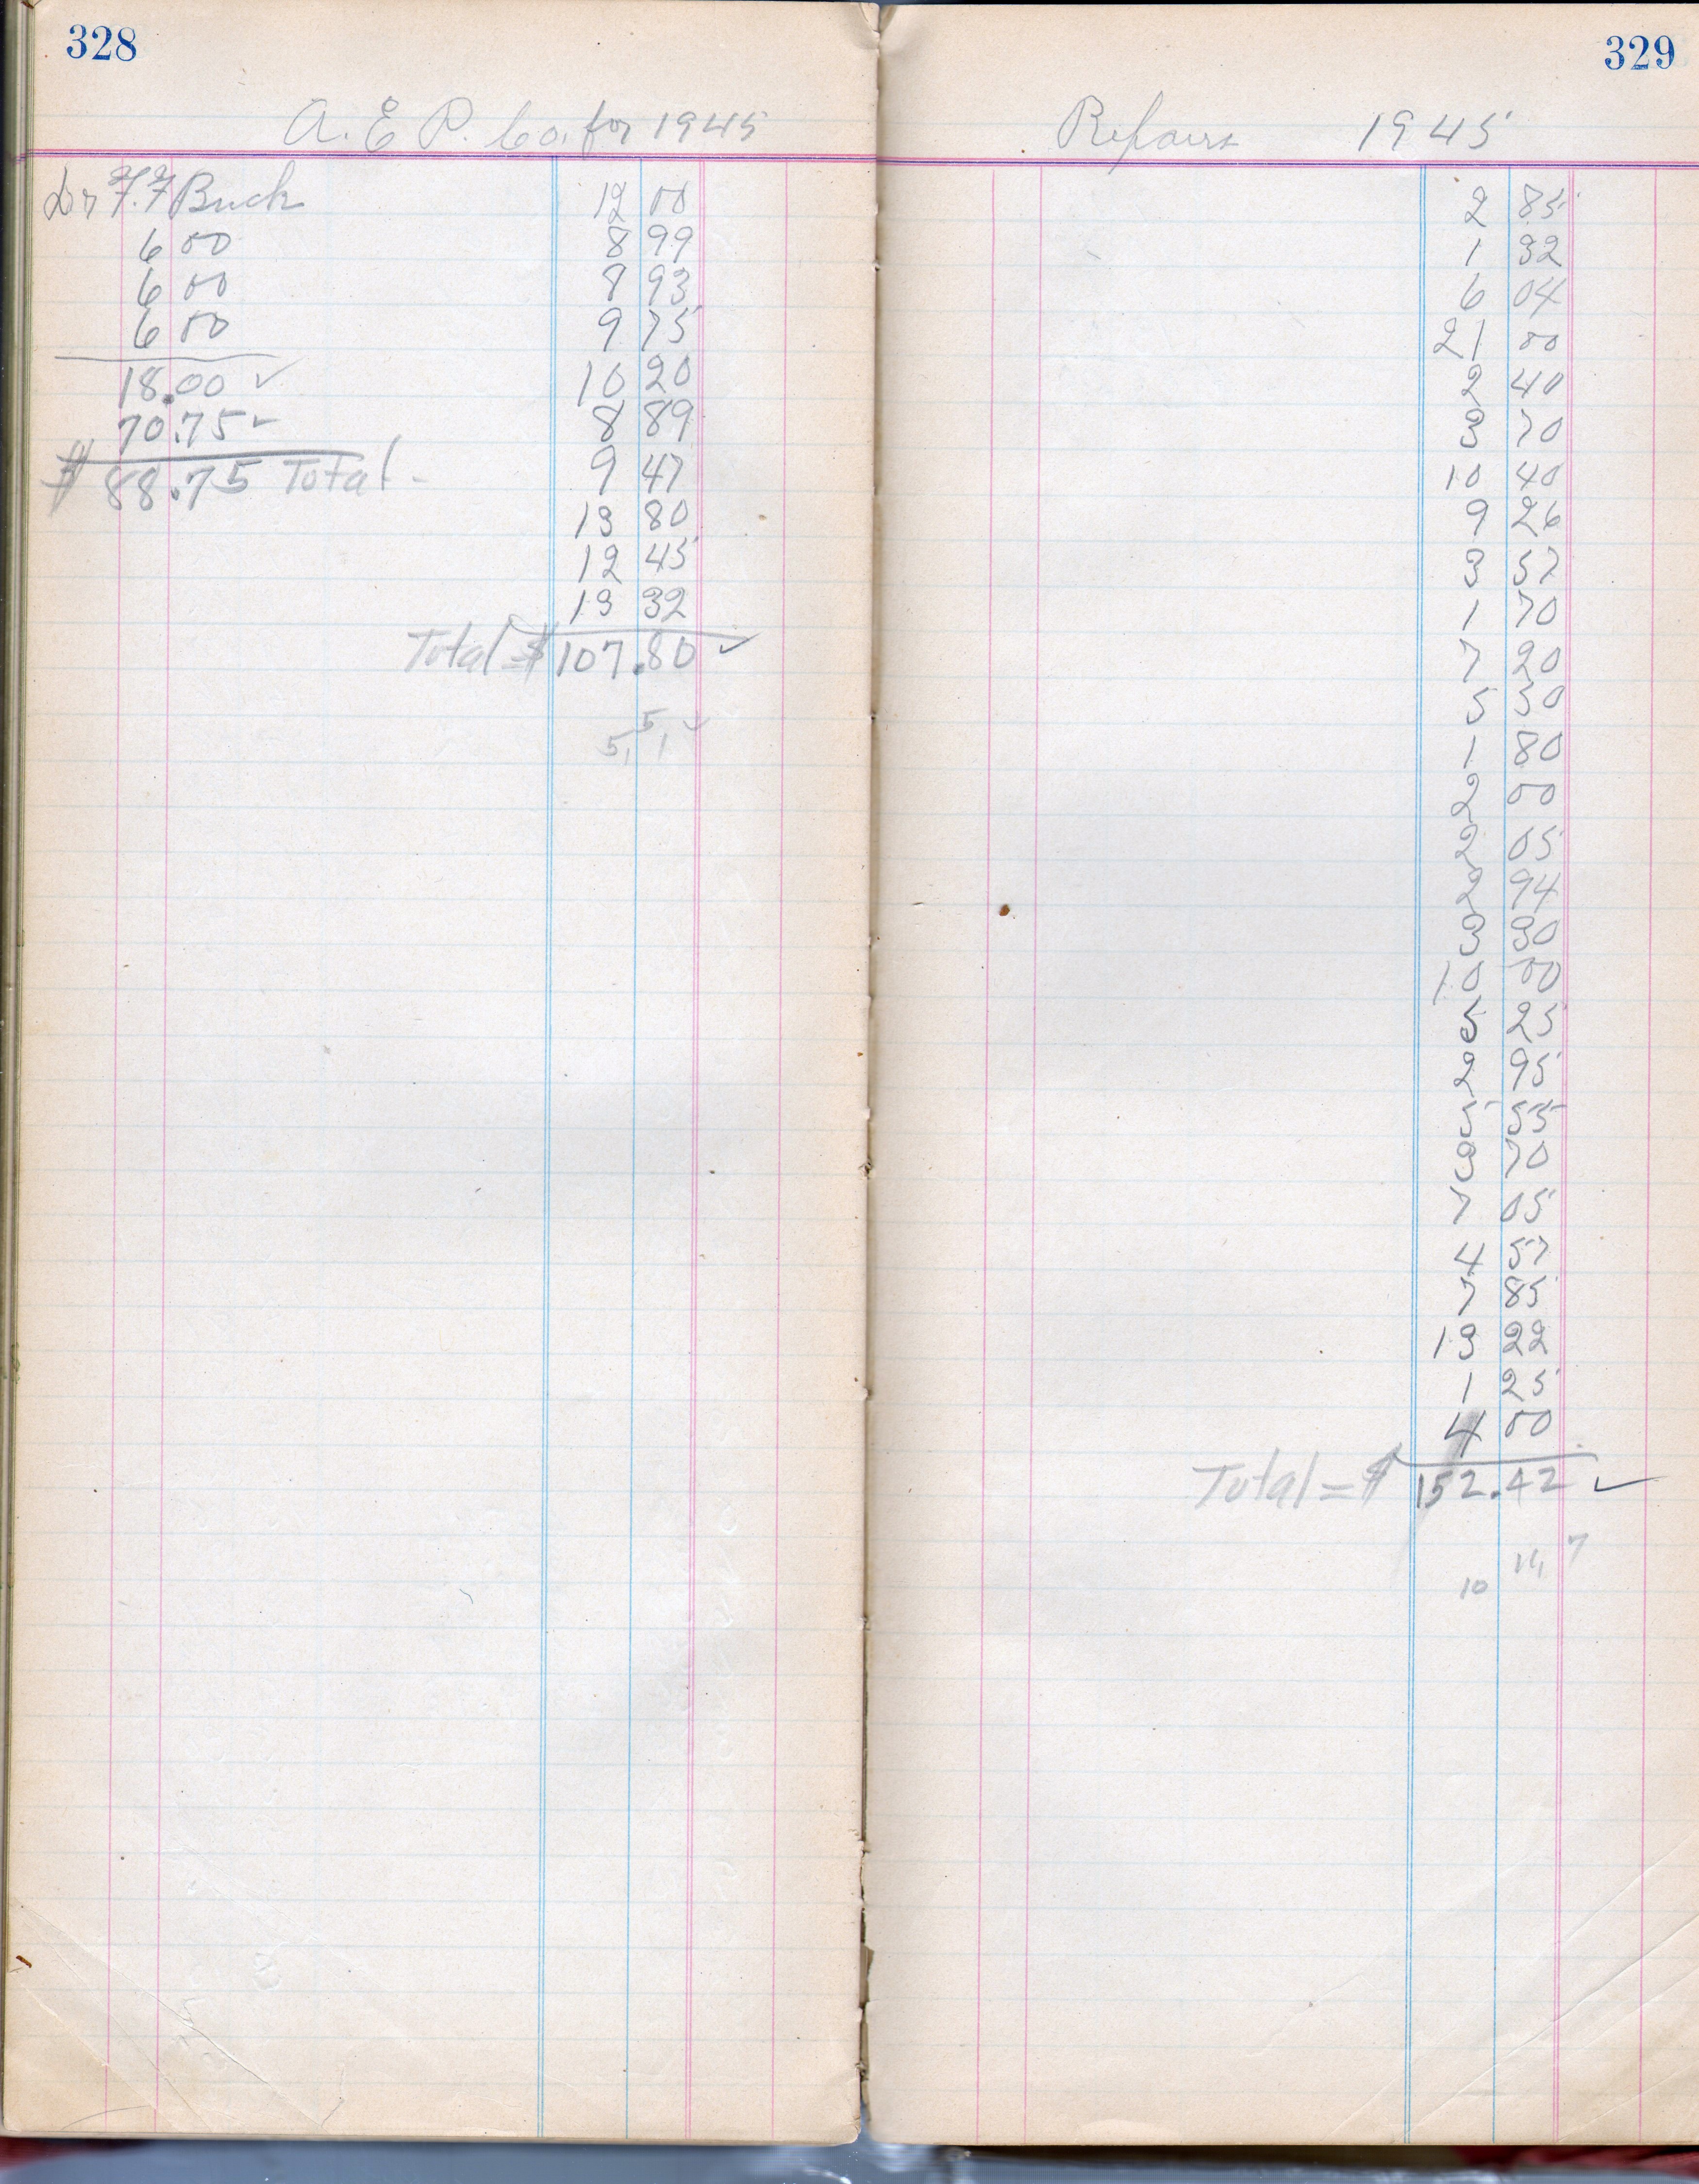 328
A. E. P. Co. for 1945
Dr F.F Buck 12 00
6 00 8 99
6 00 8 93
6 00 9 75
18.00 ✓ 10 20
70.75 ✓ 8 89
$ 88.75 Total 9 47
13 80
12 45
13 32
Total = $ 107.80 ✓
5
5, 1 ✓
329
Repairs 1945
2 85
1 32
6 04
21 00
2 40
3 70
10 40
9 26
3 57
1 70
7 20
5 50
1 80
2 00
2 05
2 94
3 30
10 00
5 25
2 95
5 55
3 70
7 05
4 57
7 85
13 22
1 25
4 00
Total = $ 152.42 ✓
7
10